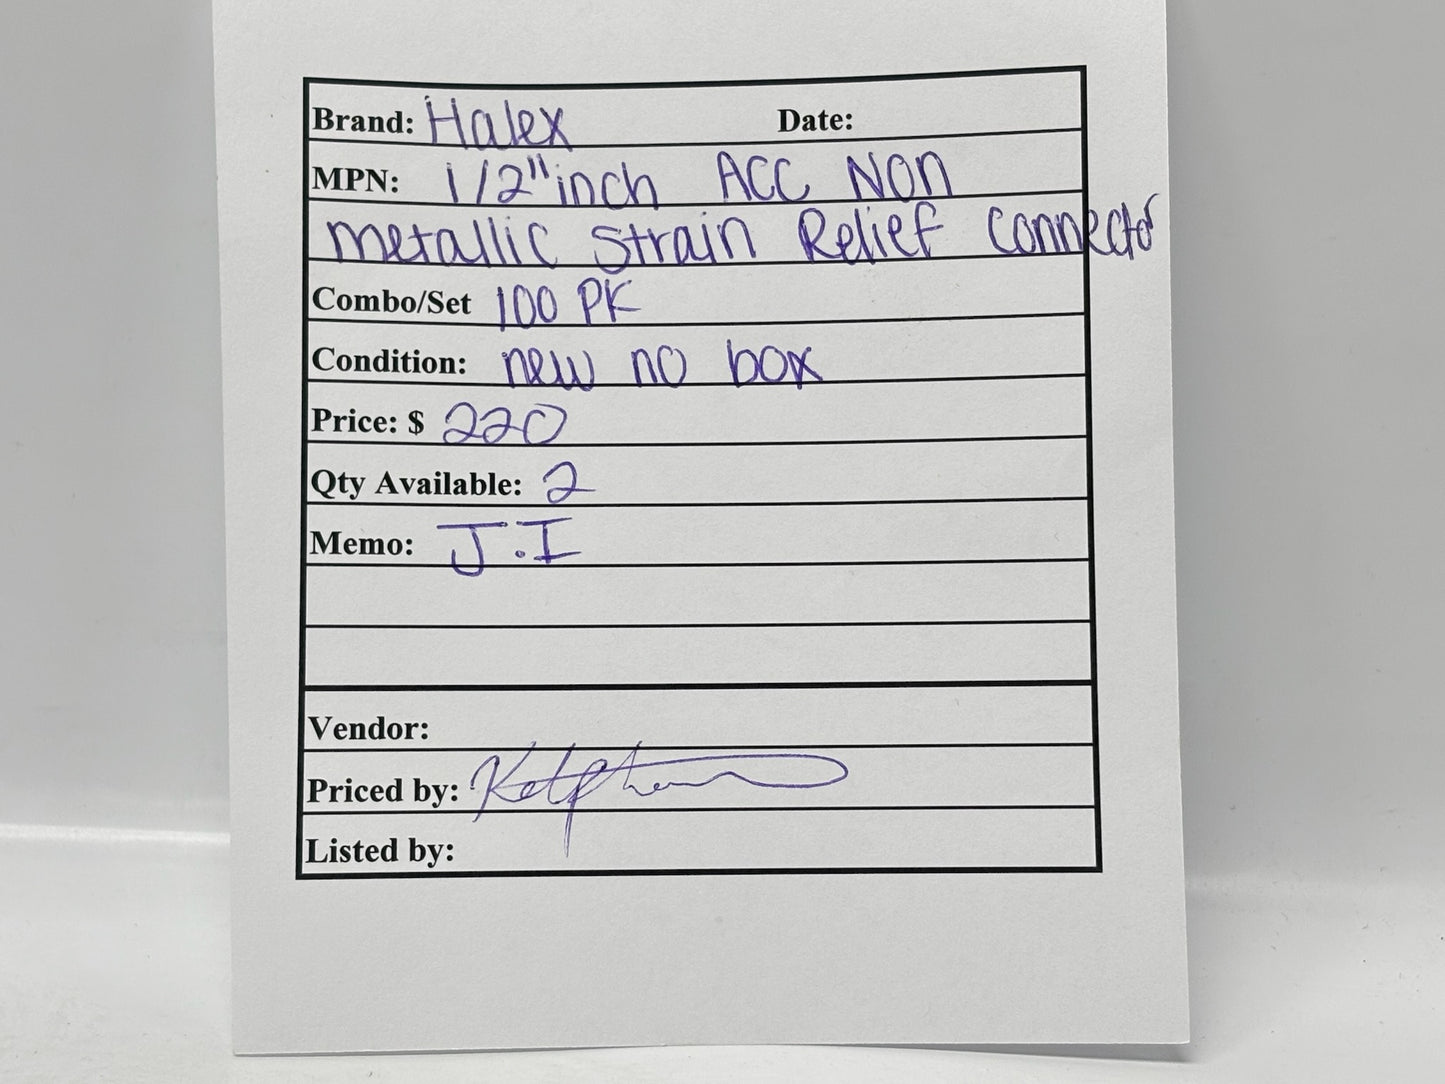 Brand: Halex Date:
MPN: 1/2" inch ACC Non
metallic strain Relief connector
Combo/Set 100 PK
Condition: new no box
Price: $ 220
Qty Available: 2
Memo: J.I
Vendor:
Priced by:
Listed by: